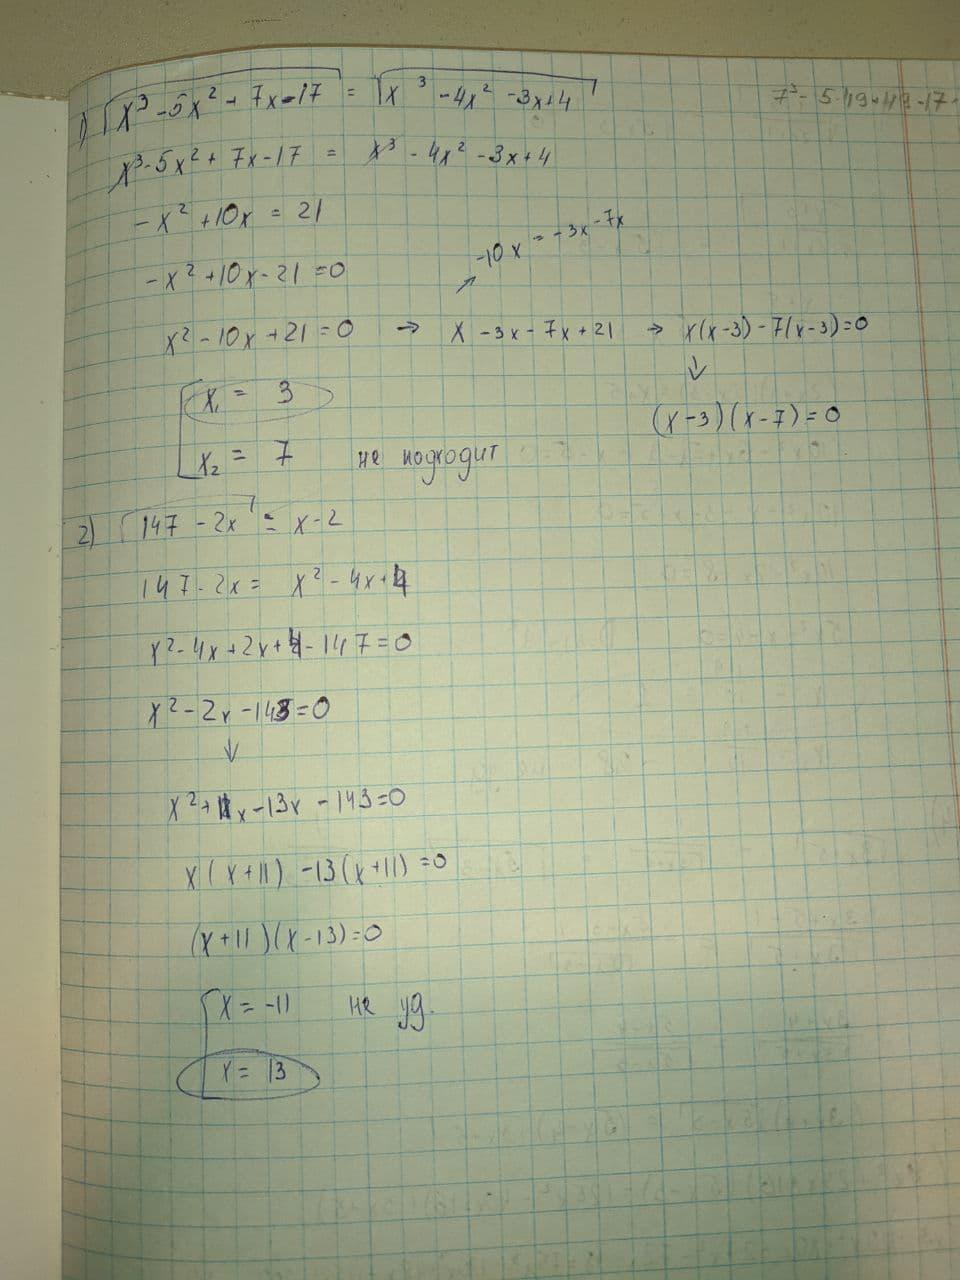 1) √(x³ - 5x² + 7x - 17) = √(x³ - 4x² - 3x + 4)
7³ - 5·49 + 49 - 17
x³ - 5x² + 7x - 17 = x³ - 4x² - 3x + 4
- x² + 10x = 21
-10x = -3x - 7x
- x² + 10x - 21 = 0 ↗
x² - 10x + 21 = 0 → x - 3x - 7x + 21 → x(x-3) - 7(x-3) = 0
↓
x₁ = 3
(x-3)(x-7) = 0
x₂ = 7 не подходит
2) √(147 - 2x) = x - 2
147 - 2x = x² - 4x + 4
x² - 4x + 2x + 4 - 147 = 0
x² - 2x - 143 = 0
↓
x² + 11x - 13x - 143 = 0
x(x+11) - 13(x+11) = 0
(x+11)(x-13) = 0
x = -11 не уд.
x = 13